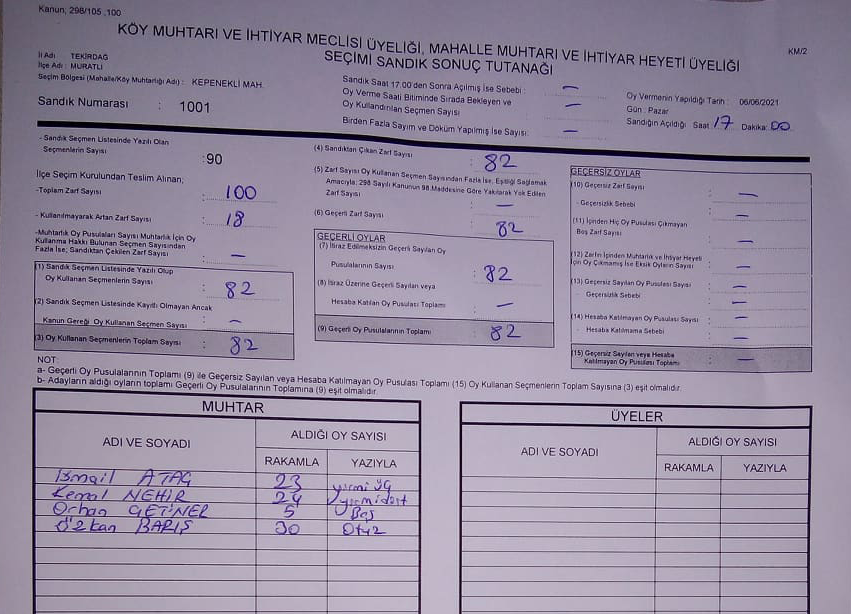 Kanun; 298/105 ,100
KÖY MUHTARI VE İHTİYAR MECLİSİ ÜYELİĞİ, MAHALLE MUHTARI VE İHTİYAR HEYETİ ÜYELİĞİ
SEÇİMİ SANDIK SONUÇ TUTANAĞI
KM/2
İl Adı : TEKİRDAĞ
İlçe Adı : MURATLI
Seçim Bölgesi (Mahalle/Köy Muhtarlığı Adı) : KEPENEKLİ MAH.
Sandık Numarası : 1001
Sandık Saat 17.00'den Sonra Açılmış İse Sebebi : —
Oy Verme Saati Bitiminde Sırada Bekleyen ve
Oy Kullandırılan Seçmen Sayısı : —
Birden Fazla Sayım ve Döküm Yapılmış İse Sayısı: —
Oy Vermenin Yapıldığı Tarih : 06/06/2021
Gün : Pazar
Sandığın Açıldığı Saat 17 Dakika: 00
- Sandık Seçmen Listesinde Yazılı Olan
Seçmenlerin Sayısı :90
İlçe Seçim Kurulundan Teslim Alınan;
-Toplam Zarf Sayısı : 100
- Kullanılmayarak Artan Zarf Sayısı : 18
-Muhtarlık Oy Pusulaları Sayısı Muhtarlık İçin Oy
Kullanma Hakkı Bulunan Seçmen Sayısından
Fazla İse; Sandıktan Çekilen Zarf Sayısı : —
(1) Sandık Seçmen Listesinde Yazılı Olup
Oy Kullanan Seçmenlerin Sayısı : 82
(2) Sandık Seçmen Listesinde Kayıtlı Olmayan Ancak
Kanun Gereği Oy Kullanan Seçmen Sayısı : —
(3) Oy Kullanan Seçmenlerin Toplam Sayısı : 82
(4) Sandıktan Çıkan Zarf Sayısı : 82
(5) Zarf Sayısı Oy Kullanan Seçmen Sayısından Fazla İse, Eşitliği Sağlamak
Amacıyla; 298 Sayılı Kanunun 98.Maddesine Göre Yakılarak Yok Edilen
Zarf Sayısı : —
(6) Geçerli Zarf Sayısı : 82
GEÇERLİ OYLAR
(7) İtiraz Edilmeksizin Geçerli Sayılan Oy
Pusulalarının Sayısı : 82
(8) İtiraz Üzerine Geçerli Sayılan veya
Hesaba Katılan Oy Pusulası Toplamı : —
(9) Geçerli Oy Pusulalarının Toplamı : 82
GEÇERSİZ OYLAR
(10) Geçersiz Zarf Sayısı : —
- Geçersizlik Sebebi : —
(11) İçinden Hiç Oy Pusulası Çıkmayan
Boş Zarf Sayısı : —
(12) Zarfın İçinden Muhtarlık ve İhtiyar Heyeti
İçin Oy Çıkmamış İse Eksik Oyların Sayısı : —
(13) Geçersiz Sayılan Oy Pusulası Sayısı : —
- Geçersizlik Sebebi : —
(14) Hesaba Katılmayan Oy Pusulası Sayısı : —
- Hesaba Katılmama Sebebi : —
(15) Geçersiz Sayılan veya Hesaba
Katılmayan Oy Pusulası Toplamı : —
NOT:
a- Geçerli Oy Pusulalarının Toplamı (9) ile Geçersiz Sayılan veya Hesaba Katılmayan Oy Pusulası Toplamı (15) Oy Kullanan Seçmenlerin Toplam Sayısına (3) eşit olmalıdır.
b- Adayların aldığı oyların toplamı Geçerli Oy Pusulalarının Toplamına (9) eşit olmalıdır.
MUHTAR
ADI VE SOYADI ALDIĞI OY SAYISI
RAKAMLA YAZIYLA
İsmail ATAÇ 23 yirmi üç
Kemal NEHİR 24 yirmidört
Orhan ÇETİNER 5 Beş
Özkan BARIŞ 30 Otuz
ÜYELER
ADI VE SOYADI ALDIĞI OY SAYISI
RAKAMLA YAZIYLA